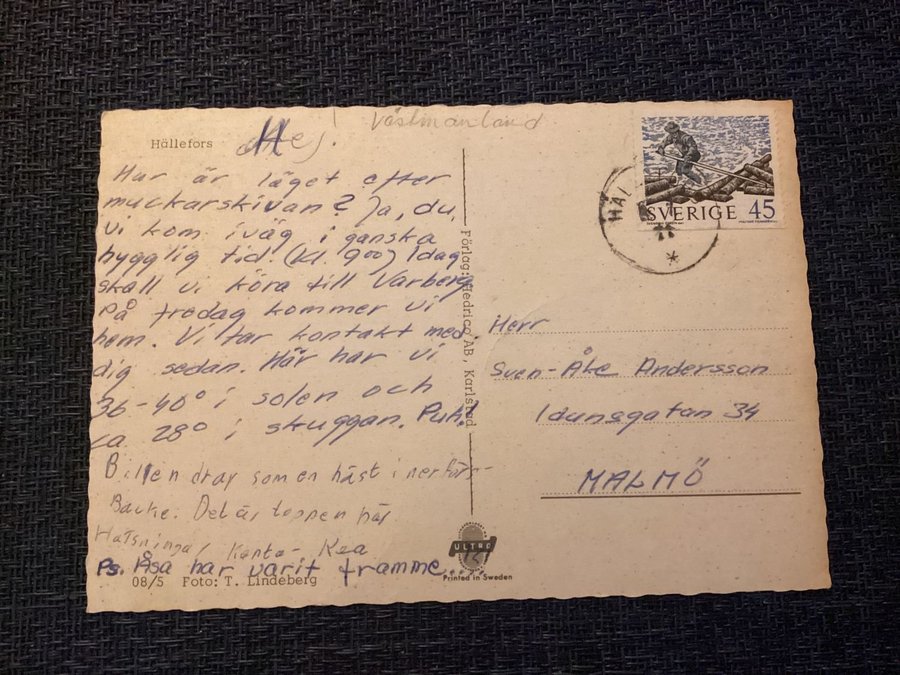 Hällefors
Hej! Västmanland
Hur är läget efter
muckarskivan? Ja, du,
vi kom iväg i ganska
hygglig tid (kl. 900) Idag
skall vi köra till Varberg
på fredag kommer vi
hem. Vi tar kontakt med
dig sedan. Här har vi
36-40° i solen och
ca 28° i skuggan. Puh!
Billen drar som en häst i nerför-
Backe. Det är toppen här
Hälsningar Kenta- Kea
Ps. Åsa har varit framme...
08/5 Foto: T. Lindeberg
Förlag: Hedrico AB, Karlstad
ULTRA
Printed in Sweden
SVERIGE 45
HÄL
Herr
Sven-Åke Andersson
Idunsgatan 34
MALMÖ